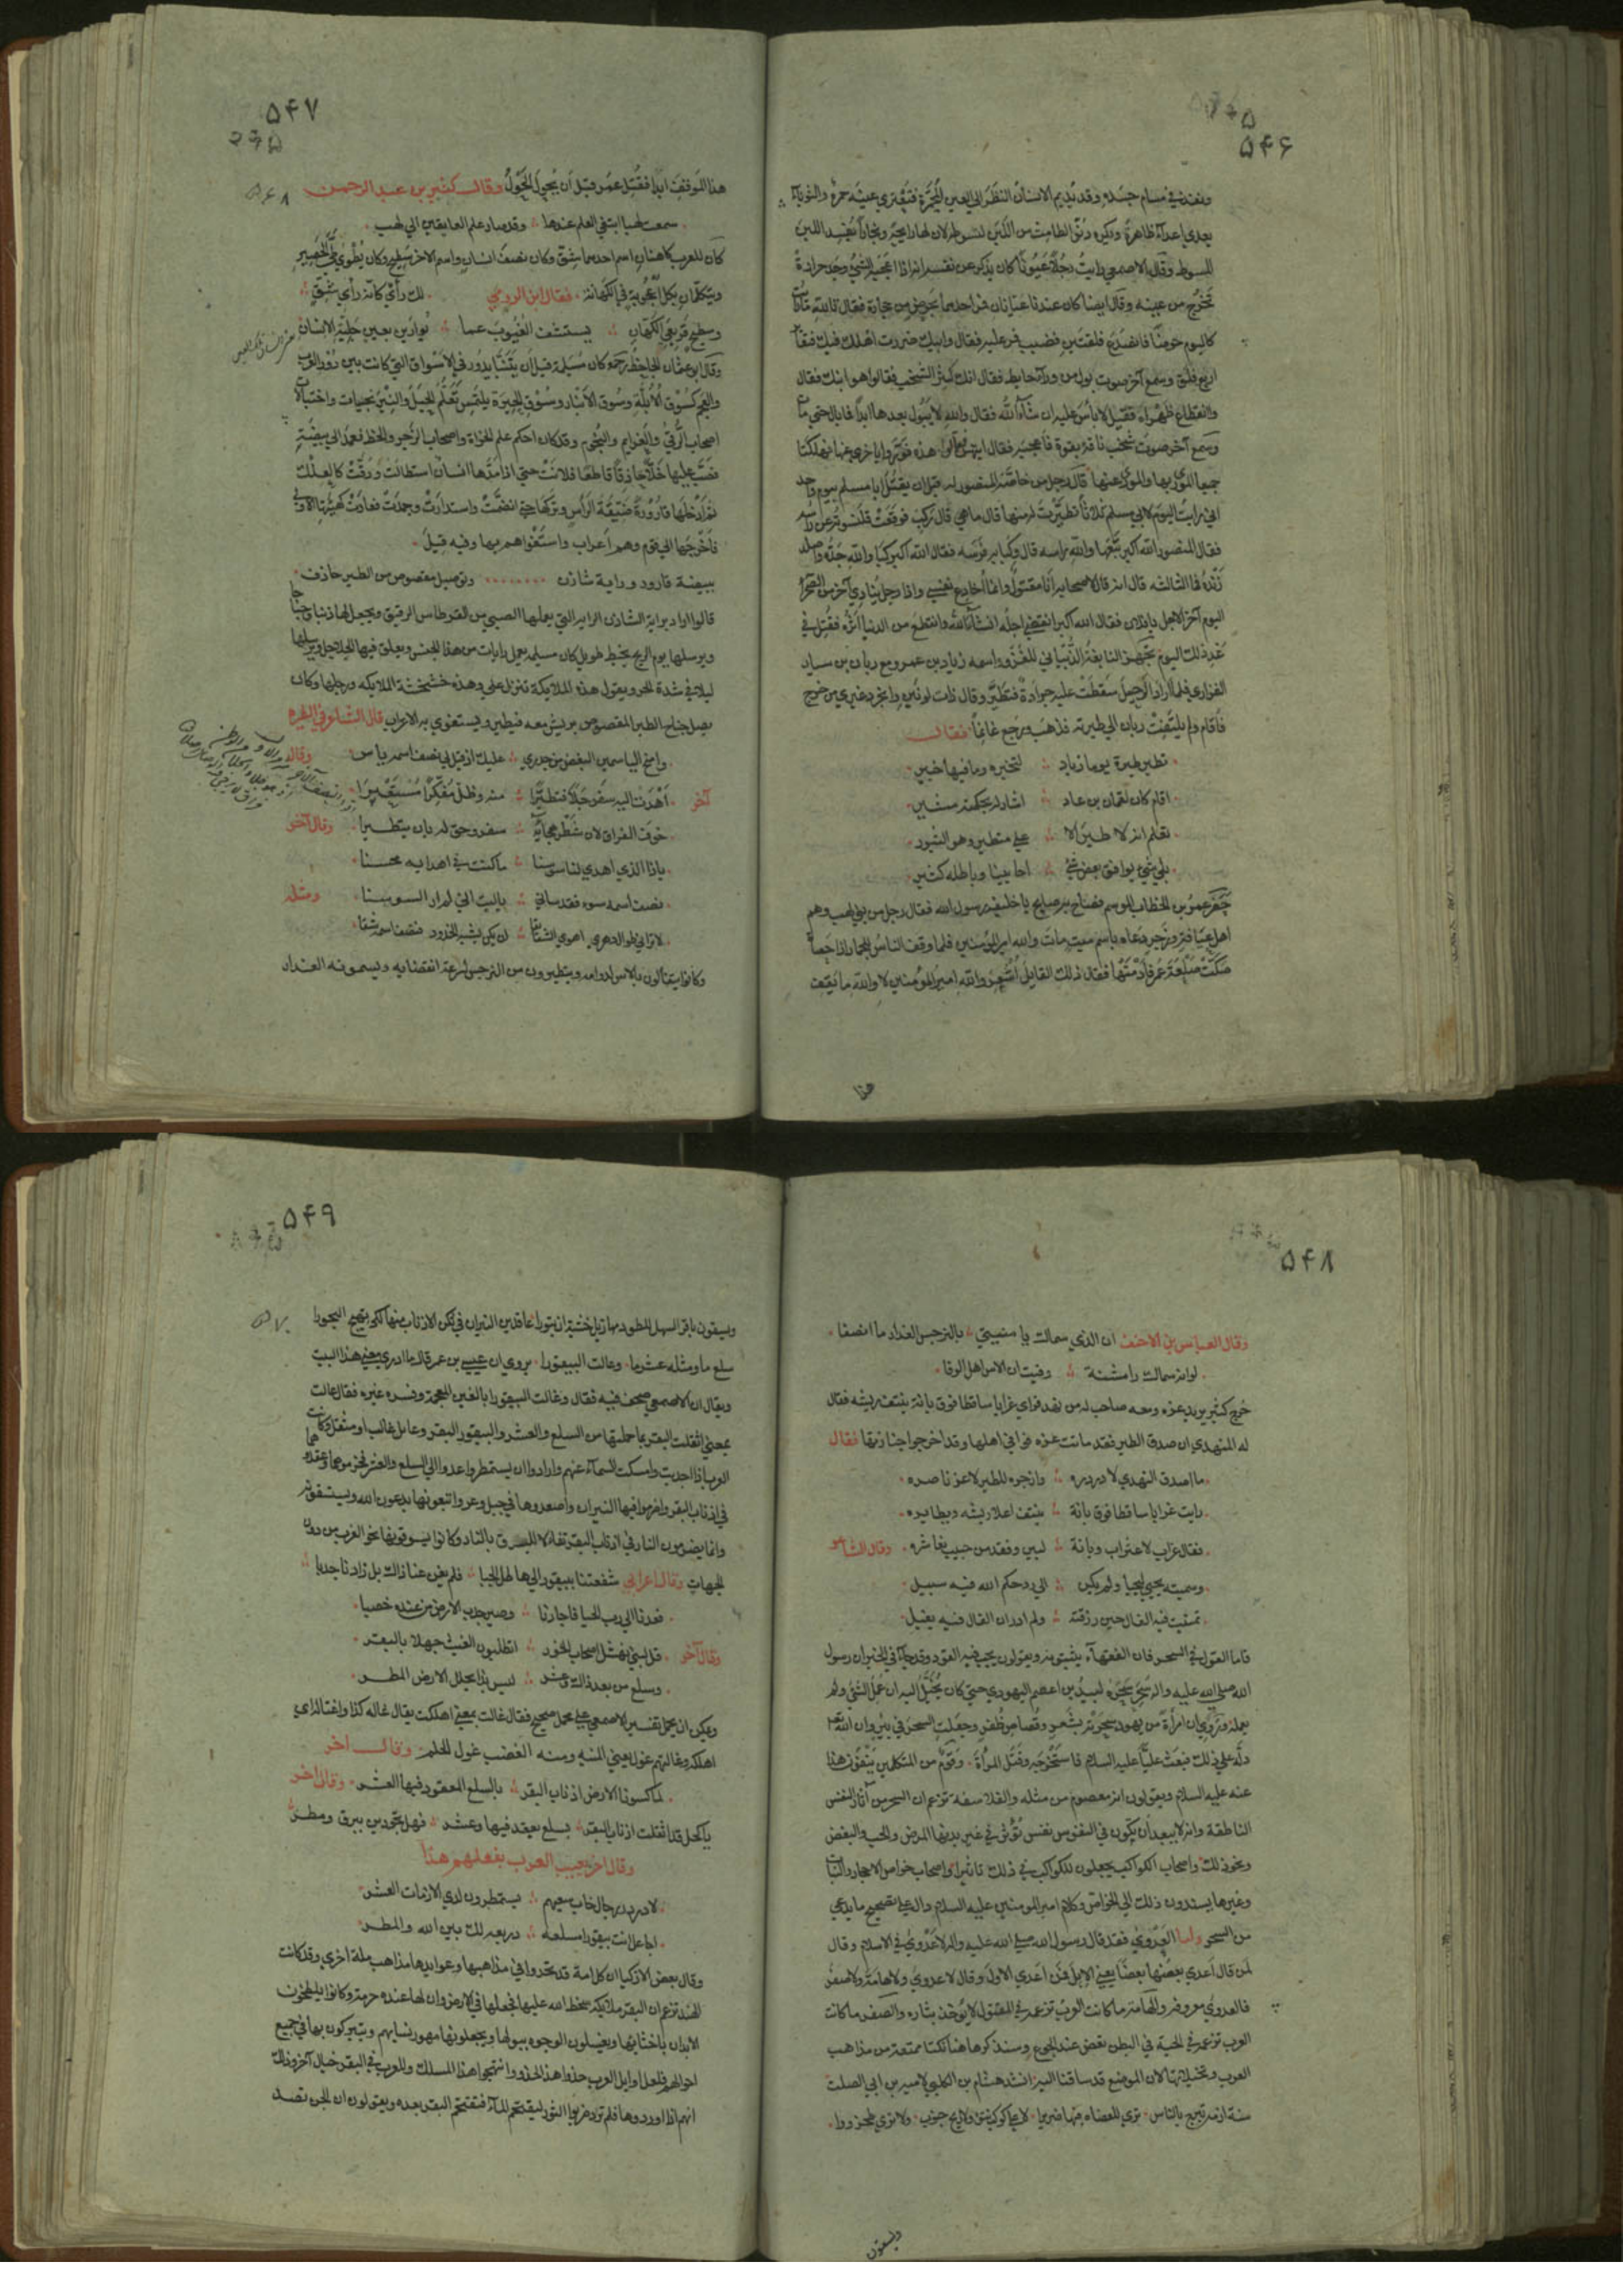 ۵۴۶
وينفذ في مسام جسده وقد يديم الانسان النظر الى العين المحمرة فتعتري عينيه حمرة والثوباء
يعدي اعداء ظاهرا ويكره دنو الطامث من اللبن لتسوطه لان لها رايحة وبخارا يفسد اللبن
المسوط وقال الاصمعي رايت رجلا عيونا كان يذكر عن نفسه انه اذا اعجبه الشئ وجد حرارة
تخرج من عينه وقال ايضا كان عندنا عيانان فمر احدهما بحوض من حجارة فقال تالله ما رايت
كاليوم حوضا فانصدع فلقتين فضبب فمر عليه فقال وابيك لقلما ضررت اهلك فيك فتطاير
اربع فلق وسمع آخر صوت بول من وراء حايط فقال انك كثير الشخب فقالوا هو ابنك فقال
وانقطاع ظهراه فقيل لا باس عليه ان شاء الله فقال والله لا يبول بعدها ابدا فما بال حتى مات
وسمع آخر صوت شخب ناقة بقوة فاعجبه فقال ايتهن هذه فوروا باخرى عنها فهلكتا
جميعا المورى بها والمورى عنها قال رجل من خاصة المنصور له قبل ان يقتل ابا مسلم بيوم واحد
اني رايت اليوم لابي مسلم ثلاثا تطيرت له منها قال ما هي قال ركب فوقعت قلنسوته عن راسه
فقال المنصور الله اكبر تبعها والله راسه قال وكبا به فرسه فقال الله اكبر كبا والله جده واصلد
زنده فما الثالثه قال انه قال لاصحابه انا مقتول وانما اخادع نفسي واذا رجل ينادي آخر من الصحراء
اليوم آخر الاجل يا فلان فقال الله اكبر انقضى اجله انشاء الله وانقطع من الدنيا اثره فقتل في
غد ذلك اليوم تجهز النابغة الذبياني للغزو واسمه زياد بن عمرو مع زبان بن سيار
الفزاري فلما اراد الرحيل سقطت عليه جرادة فتطير وقال ذات لونين وانجر دغيري من خرج
فاقام ولم يلتفت زبان الى طيرته فذهب ورجع غانما فقال
تطير طيرة يوما زياد ∴ لتخبره وما فيها خبير
اقام كان لقمان بن عاد ∴ اشار له بحكمته مشير
تعلم انه لا طير الا ∴ على متطير وهو الثبور
بلى شيء يوافق بعض شئ ∴ احايينا وباطله كثير
حضر عمر بن الخطاب الموسم فصاح به صايح يا خليفة رسول الله فقال رجل من بني لهب وهم
اهل عيافة وزجر دعاه باسم ميت مات والله امير المؤمنين فلما وقف الناس للجمار اذا حصاة
صكت صلعة عمر فادمتها فقال ذلك القايل اشعر والله امير المؤمنين لا والله ما يقف
هذا
۵۴۷
۵۶۸
هذا الموقف ابدا فقتل عمر قبل ان يحول الحول وقال كثير بن عبد الرحمن
سمعت لهبا ابتغي العلم عندها ∴ وقد صار علم العايفين الى لهب
كان للعرب كاهنان اسم احدهما شق وكان نصف انسان واسم الآخر سطيح وكان يطوى طي الحصير
ويتكلمان بكل اعجوبة في الكهانة فقال ابن الرومي لك راي كانه راي شق ∴
وسطيح قريعي الكهان ∴ يستشف الغيوب عما ∴ يوارين بعين جلية الانسان
وقال ابو عثمان الجاحظ رحمه كان مسيلمة قبل ان يتنبا يدور في الاسواق التي كانت بين دور العرب
والعجم كسوق الابلة وسوق الانبار وسوق الحيرة يلتمس تعلم الحيل والنيرنجيات واحتيالات
اصحاب الرقى والعزايم والنجوم وقد كان احكم علم الحزاة واصحاب الزجر والخط فعمد الى بيضة
فصب عليها خلا حاذقا قاطعا فلانت حتى اذا مدها انسان استطالت ودقت كالعلك
ثم ادخلها قارورة ضيقة الراس وتركها حتى انضمت واستدارت وجمدت فعادت كهيئتها الاولى
فاخرجها الى قوم وهم اعراب واستغواهم بها وفيه قيل
ببيضة قارور وراية شادن ∴ وتوصيل مقصوص من الطير حاذف
قالوا اراد براية الشادن الراية التي يعملها الصبي من القرطاس الرقيق ويجعل لها ذنبا وجناحا
ويرسلها يوم الريح بخيط طويل كان مسيلمه يعمل رايات من هذا الجنس ويعلق فيها الجلاجل ويرسلها
ليلا في شدة الحر ويقول هذه الملايكة تنزل علي وهذه خشخشة الملايكه وزجلها وكان
يصل جناح الطير المقصوص بريش معه فيطير ويستغوي به الاعراب قال الشاعر في الطيره
وامنع الياسمين البغض من حذري ∴ عليك اذ قيل لي نصف اسمه ياس وقال
آخر اهدت اليه سفرجلا فتطيرا ∴ منه وظل مفكرا مستعبرا
خوف الفراق لان شطر هجائه ∴ سفر وحق له بان يتطيرا وقال آخر
ياذا الذي اهدى لنا سوسنا ∴ ما كنت في اهدايه محسنا
نصف اسمه سوء فقد ساني ∴ ياليت اني لم ار السوسنا ومثله
لا تراني طوال دهري اهوى الشقايقا ∴ ان يكن يشبه الخدود فنصف اسمه شقا
وكانوا يتفالون بالاس لدوامه ويتطيرون من النرجس لسرعة انقضايه ويسمونه الغدار
۵۴۸
وقال العباس بن الاحنف ان الذي سماك يا منيتي ∴ بالنرجس الغدار ما انصفا
لو انه سماك وامشنة ∴ وفيت ان الاس اهل الوفا
خرج كثير يريد عزه ومعه صاحب له من نهد فراى غرابا ساقطا فوق بانة ينتف ريشه فقال
له النهدي ان صدق الطير فقد ماتت عزه فوافى اهلها وقد اخرجوا جنازتها فقال
ما اصدق النهدي لا در دره ∴ وازجره للطير لا عز ناصره
رايت غرابا ساقطا فوق بانة ∴ ينتف اعلا ريشه ويطايره
فقال غراب لاغتراب وبانة ∴ لبين وفقد من حبيب تعاشره وقال الشاعر
وسميته يحيى ليحيا ولم يكن ∴ الى رد حكم الله فيه سبيل
تمنيت فيه الفال حين رزقته ∴ ولم ادر ان الفال فيه يفيل
فاما القول في السحر فان الفقهاء يثبتونه ويقولون يجب فيه القود وقد جاء في الخبر ان رسول
الله صلى الله عليه واله سحره لبيد بن اعصم اليهودي حتى كان يخيل اليه انه عمل الشئ ولم
يعمله وروي ان امراة من يهود سحرته بشعر وقصاص ظفر وجعلت السحر في بئر وان الله تعالى
دله على ذلك فبعث عليا عليه السلام فاستخرجه وقتل المراة وقوم من المتكلمين ينفون هذا
عنه عليه السلام ويقولون انه معصوم من مثله والفلاسفة تزعم ان السحر من آثار النفس
الناطقة وانه لا يبعد ان يكون في النفوس نفس تؤثر في غير بدنها المرض والحب والبغض
ونحو ذلك واصحاب الكواكب يجعلون للكواكب في ذلك تاثيرا واصحاب خواص الاحجار والنبات
وغيرها يسندون ذلك الى الخواص وكلام امير المومنين عليه السلام دال على تصحيح ما يدعى
من السحر واما العدوى فقد قال رسول الله صلى الله عليه واله لا عدوى في الاسلام وقال
لمن قال اعدى بعضها بعضا يعني الابل فمن اعدى الاول وقال لا عدوى ولا هامة ولا صفر
فالعدوى معروفه والهامة ما كانت العرب تزعمه في المقتول لا يؤخذ بثاره والصفر ما كانت
العرب تزعمه في الحية في البطن تعض عند الجوع وسنذكر هاهنا نكتا ممتعة من مذاهب
العرب وتخيلاتها لان الموضع قد ساقنا اليه انشد هشام بن الكلبي لامية بن ابي الصلت
سنة ازمة تبرح بالناس ترى للعضاه فيها صريرا لا على كوكب ينوء ولا ريح جنوب ولا ترى طخرورا
ويسقون
۵۴۹
۵۷۰
ويسقون باقر السهل للطود مهازيل خشية ان تبورا عاقدين النيران في ثكن الاذناب منها لكي تهيج البحورا
سلع ما ومثله عشر ما وعالت البيقورا يروى ان عيسى بن عمر قال ما ادري معنى هذا البيت
ويقال ان الاصمعي صحف فيه فقال وغالت البيقورا بالغين المعجمة وفسره غيره فقال عالت
بمعنى اثقلت البقر بما حملتها من السلع والعشر والبيقور البقر وعايل غالب او مثقل وكانت
العرب اذا اجدبت وامسكت السماء عنهم وارادوا ان يستمطروا عمدوا الى السلع والعشر فحزموهما وعقدوهما
في اذناب البقر واضرموا فيها النيران واصعدوها في جبل وعر واتبعوها يدعون الله ويستسقونه
وانما يضرمون النار في اذناب البقر تفالا للبرق بالنار وكانوا يسوقونها نحو الغرب من دون
الجهات وقال اعرابي شفعنا ببيقور الى هاطل الحيا ∴ فلم يغن عنا ذاك بل زادنا جدبا
فعدنا الى رب الحيا فاجارنا ∴ وصير جدب الارض من عنده خصبا
وقال آخر قل لبني نهشل اصحاب الحور ∴ اتطلبون الغيث جهلا بالبقر
وسلع من بعد ذاك وعشر ∴ ليس بذا يجلل الارض المطر
ويمكن ان يحمل تفسير الاصمعي على محمل صحيح فقال غالت بمعنى اهلكت يقال غاله كذا واغتاله اي
اهلكه وغالتهم غول يعني المنية ومنه الغضب غول الحلم وقال آخر
لما كسونا الارض اذناب البقر ∴ بالسلع المعقود فيها العشر وقال اخر
يا كحل قد اثقلت اذناب البقر ∴ بسلع يعقد فيها وعشر ∴ فهل تجودين ببرق ومطر
وقال اخر يعيب العرب بفعلهم هذا
لا در در رجال خاب سعيهم ∴ يستمطرون لدى الازمات العشر
اجاعل انت بيقورا مسلعة ∴ ذريعة لك بين الله والمطر
وقال بعض الاذكيا ان كل امة قد تحذوا في مذاهبها وعوايدها مذاهب ملة اخرى وقد كانت
الهند تزعم ان البقر ملايكة سخط الله عليها فجعلها في الارض وان لها عنده حرمة وكانوا يلطخون
الابدان باخثائها ويغسلون الوجوه ببولها ويجعلونها مهور نسايهم ويتبركون بها في جميع
احوالهم فلعل اوايل العرب حذوا هذا الحذو وانتهجوا هذا المسلك وللعرب في البقر خيال آخر وذلك
انهم اذا اوردوها فلم ترد ضربوا الثور ليقتحم الماء فتقتحم البقر بعده ويقولون ان الجن تصد